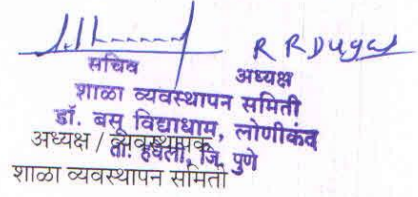 R R Dugad
सचिव अध्यक्ष
शाळा व्यवस्थापन समिती
डॉ. बसू विद्याधाम, लोणीकंद
ता. हवेली, जि. पुणे
अध्यक्ष / व्यवस्थापक
शाळा व्यवस्थापन समिती